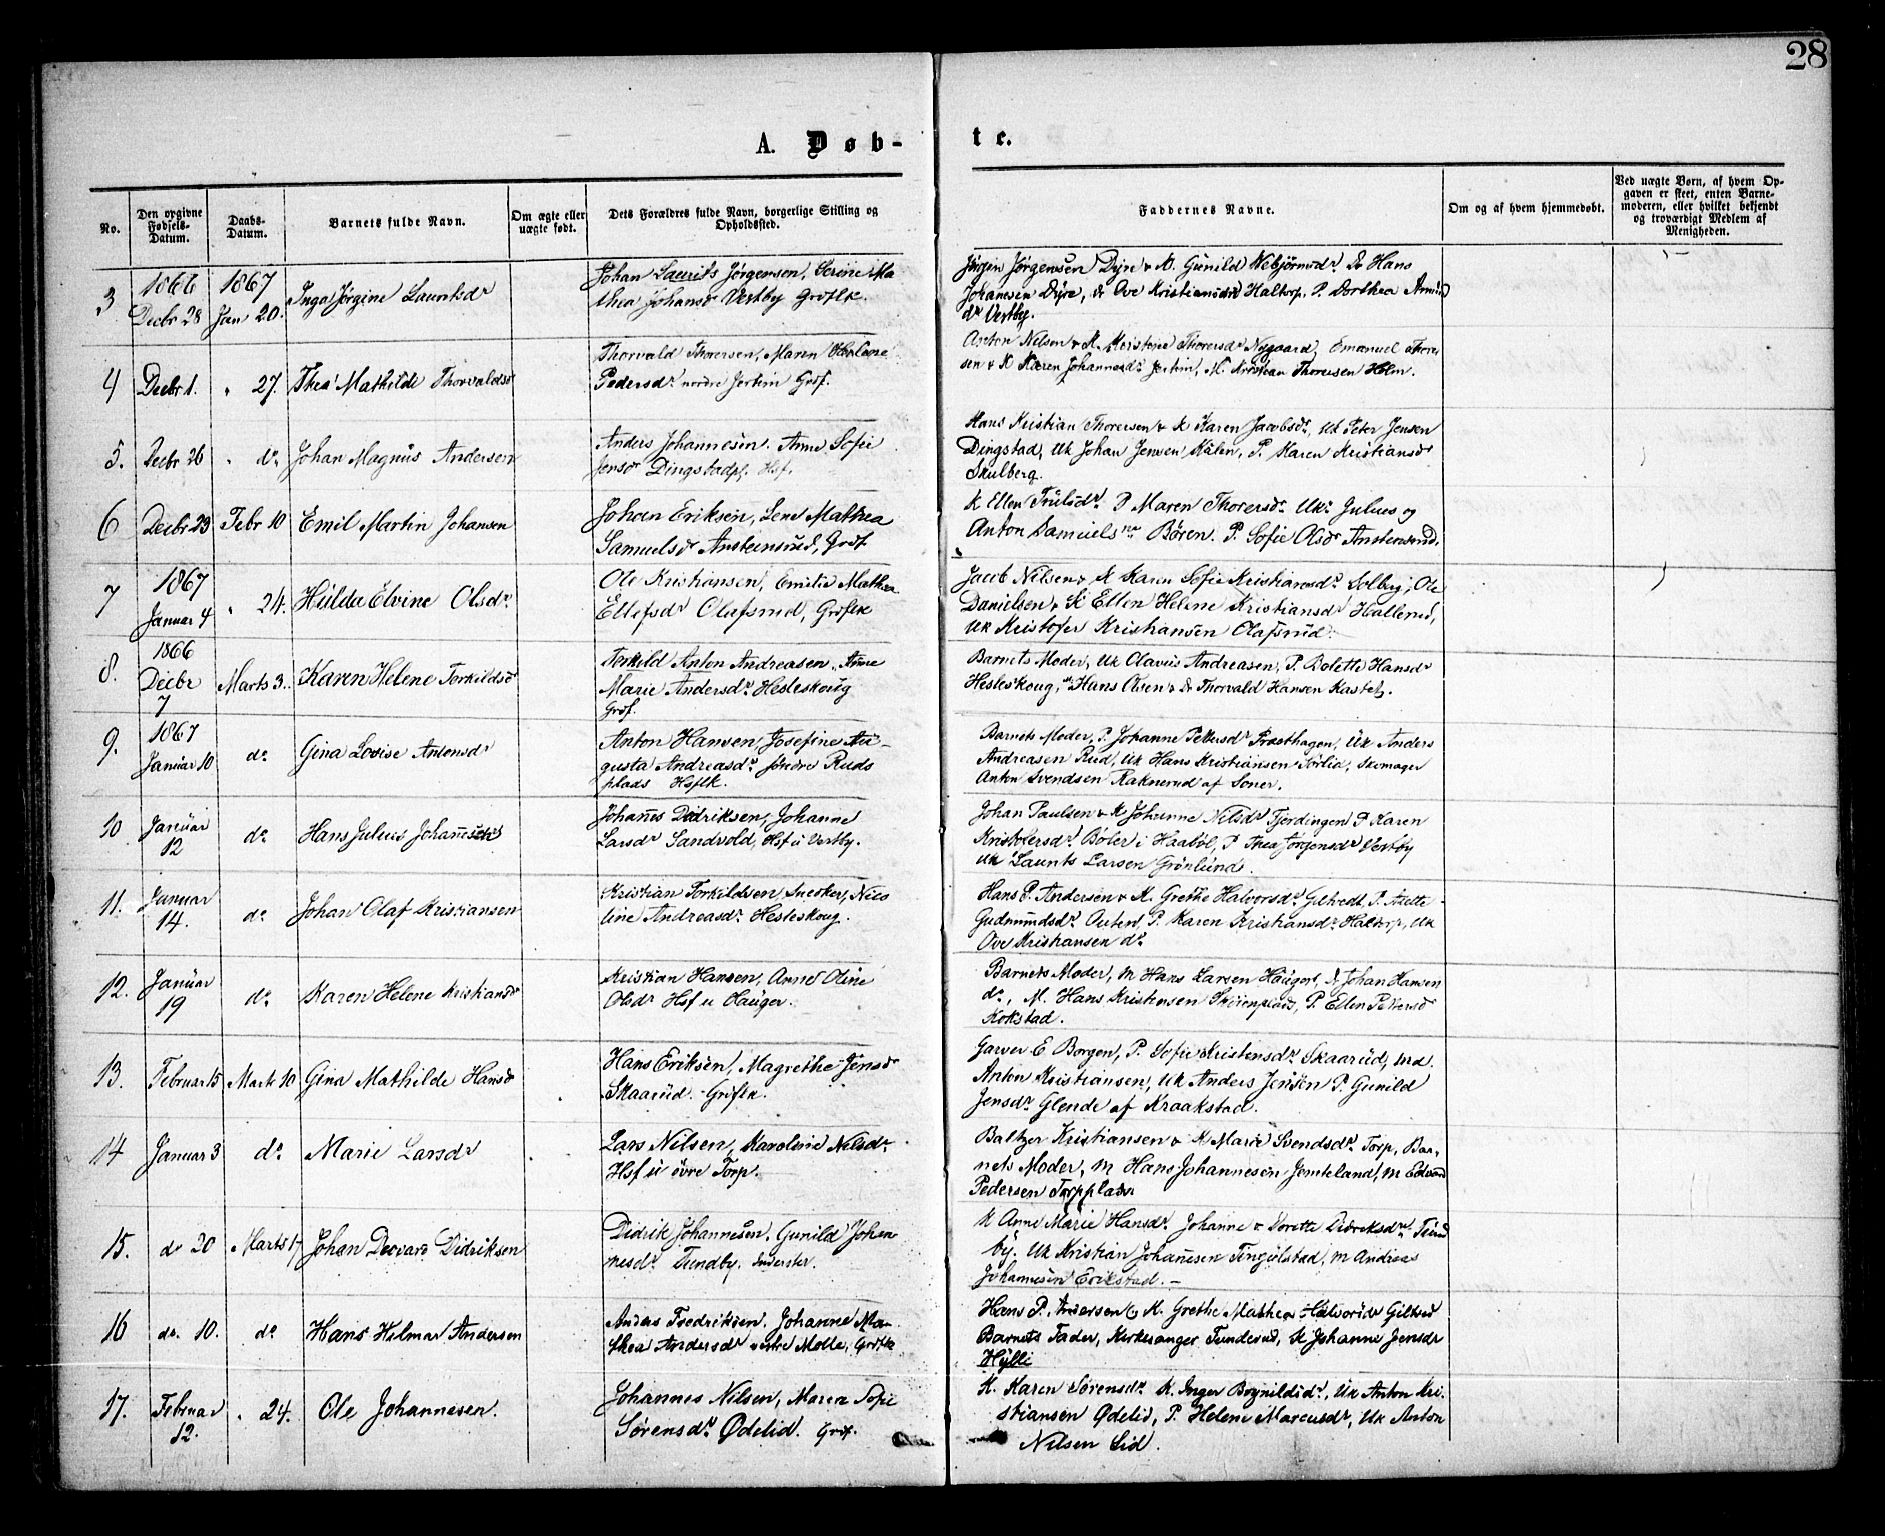 28
A. Døb-
te.
No.
Den opgivne Fødsels-Datum.
Daabs-Datum.
Barnets fulde Navn.
Om ægte eller uægte født.
Dets Forældres fulde Navn, borgerlige Stilling og Opholdssted.
Faddernes Navne.
Om og af hvem hjemmedøbt.
Ved uægte Børn, af hvem Opgaven er skeet, enten Barnemoderen, eller hvilket bekjendt og troværdigt Medlem af Menigheden.
3
1866 Decbr 28
1867 Jan 20.
Inga Jørgine Lauritsdr
Johan Laurits Jørgensen, Serine Ma
thea Johansdr Vestby Grdflk.
Jörgen Jörgensen Dyre & K. Gunild Nebjörnsdr Dr Hans
Johannesen Dyre, dr Ove Kristiansen Haltorp, P. Dorthea
dr Vestby.
4
Decbr 1.
" 27.
Thea Mathilde Thorvaldsdr
Thorvald Thoresen, Maren Helene
Pedersdr nordre Grdf.
Anton Nilsen & K. Thoresdr Nygaard, Emanuel Thore
sen & K Karen Johannesdr M. Kristian Thoresen Holm.
5.
Decbr 26
" do.
Johan Magnus Andersen
Anders Johannesen. Anne Sofie
Jensdr Dingstadpl. Hsf.
Hans Kristian Thoresen & K Karen Jacobsdr, Uk Peter Jensen
Dingstad, Uk Johan Jensen P. Karen Kristiansdr
Skulberg.
6
Decbr 23
Febr 10
Emil Martin Johansen
Johan Eriksen, Lene Mathea
Samuelsdr Grdf
K Ellen Trulsdr P Maren Thoresdr Uk Julius og
Anton Samuels Børen. P. Sofie Olsdr
7
1867 Januar 4
" 24.
Hilda Elvine Olsdr
Ole Kristiansen, Emilie Mathea
Ellefsdr Olafsrud, Grdflk
Jacob Nilsen & K Karen Sofie Kristiansdr Solberg, Ole
Danielsen & K Ellen Helene Kristiansdr Hallerud,
Uk Kristofer Kristiansen Olafsrud.
8.
1866 Decbr 7
Marts 3.
Karen Helene Torkildsdr
Torkild Anton Andreasen, Anne
Marie Andersdr Hesleskoug
Grdf.
Barnets Moder, Uk Olavus Andreasen, P. Bolette Hansdr
Hesleskoug, Hans Olsen & Dr Thorvald Hansen Kastet.
9.
1867 Januar 10
do
Gina Lovise Antonsdr
Anton Hansen, Josefine Au-
gusta Andreasdr søndre Ruds
plads Hsflk.
Barnets Moder, P. Johanne Pettersdr Præsthagen, Uk Anders
Andreasen Rud, Uk Hans Kristiansen Sørlia, Skomager
Anton Svendsen Raknerud af Soner.
10
Januar 12
do
Hans Julius Johannesen
Johannes Didriksen, Johanne
Larsdr Sandvold, Hsf u Vestby.
Johan Paulsen & K Johanne Nilsdr Fjerdingen P Karen
Kristofersdr Boler i Haabøl, P Thea Jörgensdr Vestby
Uk Laurits Larsen Grönlund.
11.
Januar 14.
do
Johan Olaf Kristiansen
Kristian Torkildsen, Snekker, Nico
line Andreasdr Hesleskoug.
Hans P. Andersen & K. Grethe Halvorsdr Giltvedt, P.
Gudmundsdr P. Karen Kristiansdr Haltorp, Uk
Ove Kristiansen do
12.
Januar 19
do
Karen Helene Kristiansdr
Kristian Hansen, Anne Oline
Olsdr Hsf u Hauger.
Barnets Moder, M Hans Larsen Hauger, Johan Hansen
do, M. Hans Kristensen P. Ellen Pettersdr
Kokstad.
13.
Februar 15
Marts 10
Gina Mathilde Hansdr
Hans Eriksen, Magrethe Jensdr
Skaarud. Grdflk.
Garver E Borgen, P. Sofie Kristensdr Skaarud,
Anton Kristiansen, Uk Anders Jensen P. Gunild
Jensdr Glende af Kraakstad.
14
Januar 3
do
Marie Larsdr
Lars Nilsen, Karoline Nilsdr
Hsf u övre Torp.
Baltzer Kristiansen & K Marie Svendsdr Torp, Bar-
nets Moder, M Hans Johannesen Jemteland, M Edvard
Pedersen Torpplads
15.
do 20
Marts 17
Johan Devard Didriksen
Didrik Johannesen, Gunild Johan
nesdr Tundby. Inderster.
K Anne Marie Hansdr Johanne & Dorette Didriksdr Tund
by. Uk Kristian Johannesen Tingulstad, M Andreas
Johannesen Erikstad. -
16
do. 10.
do
Hans Hilmar Andersen
Anders Fredriksen, Johanne Ma-
thea Andersdr vestre Molle, Grdflk
Hans P. Andersen & K. Grethe Mathea Halvorsdr Giltved
Barnets Fader, Kirkesanger Tunderud, K Johanne Jensdr
Hylli
17.
Februar 12.
" 24.
Ole Johannesen.
Johannes Nilsen, Maren Sofie
Sörensdr Ødelid. Grdf.
K. Karen Sörensdr K. Inger Uk Anton Kri-
stiansen Ødelid, P. Helene Marcusdr, Uk Anton
Nilsen Lid.